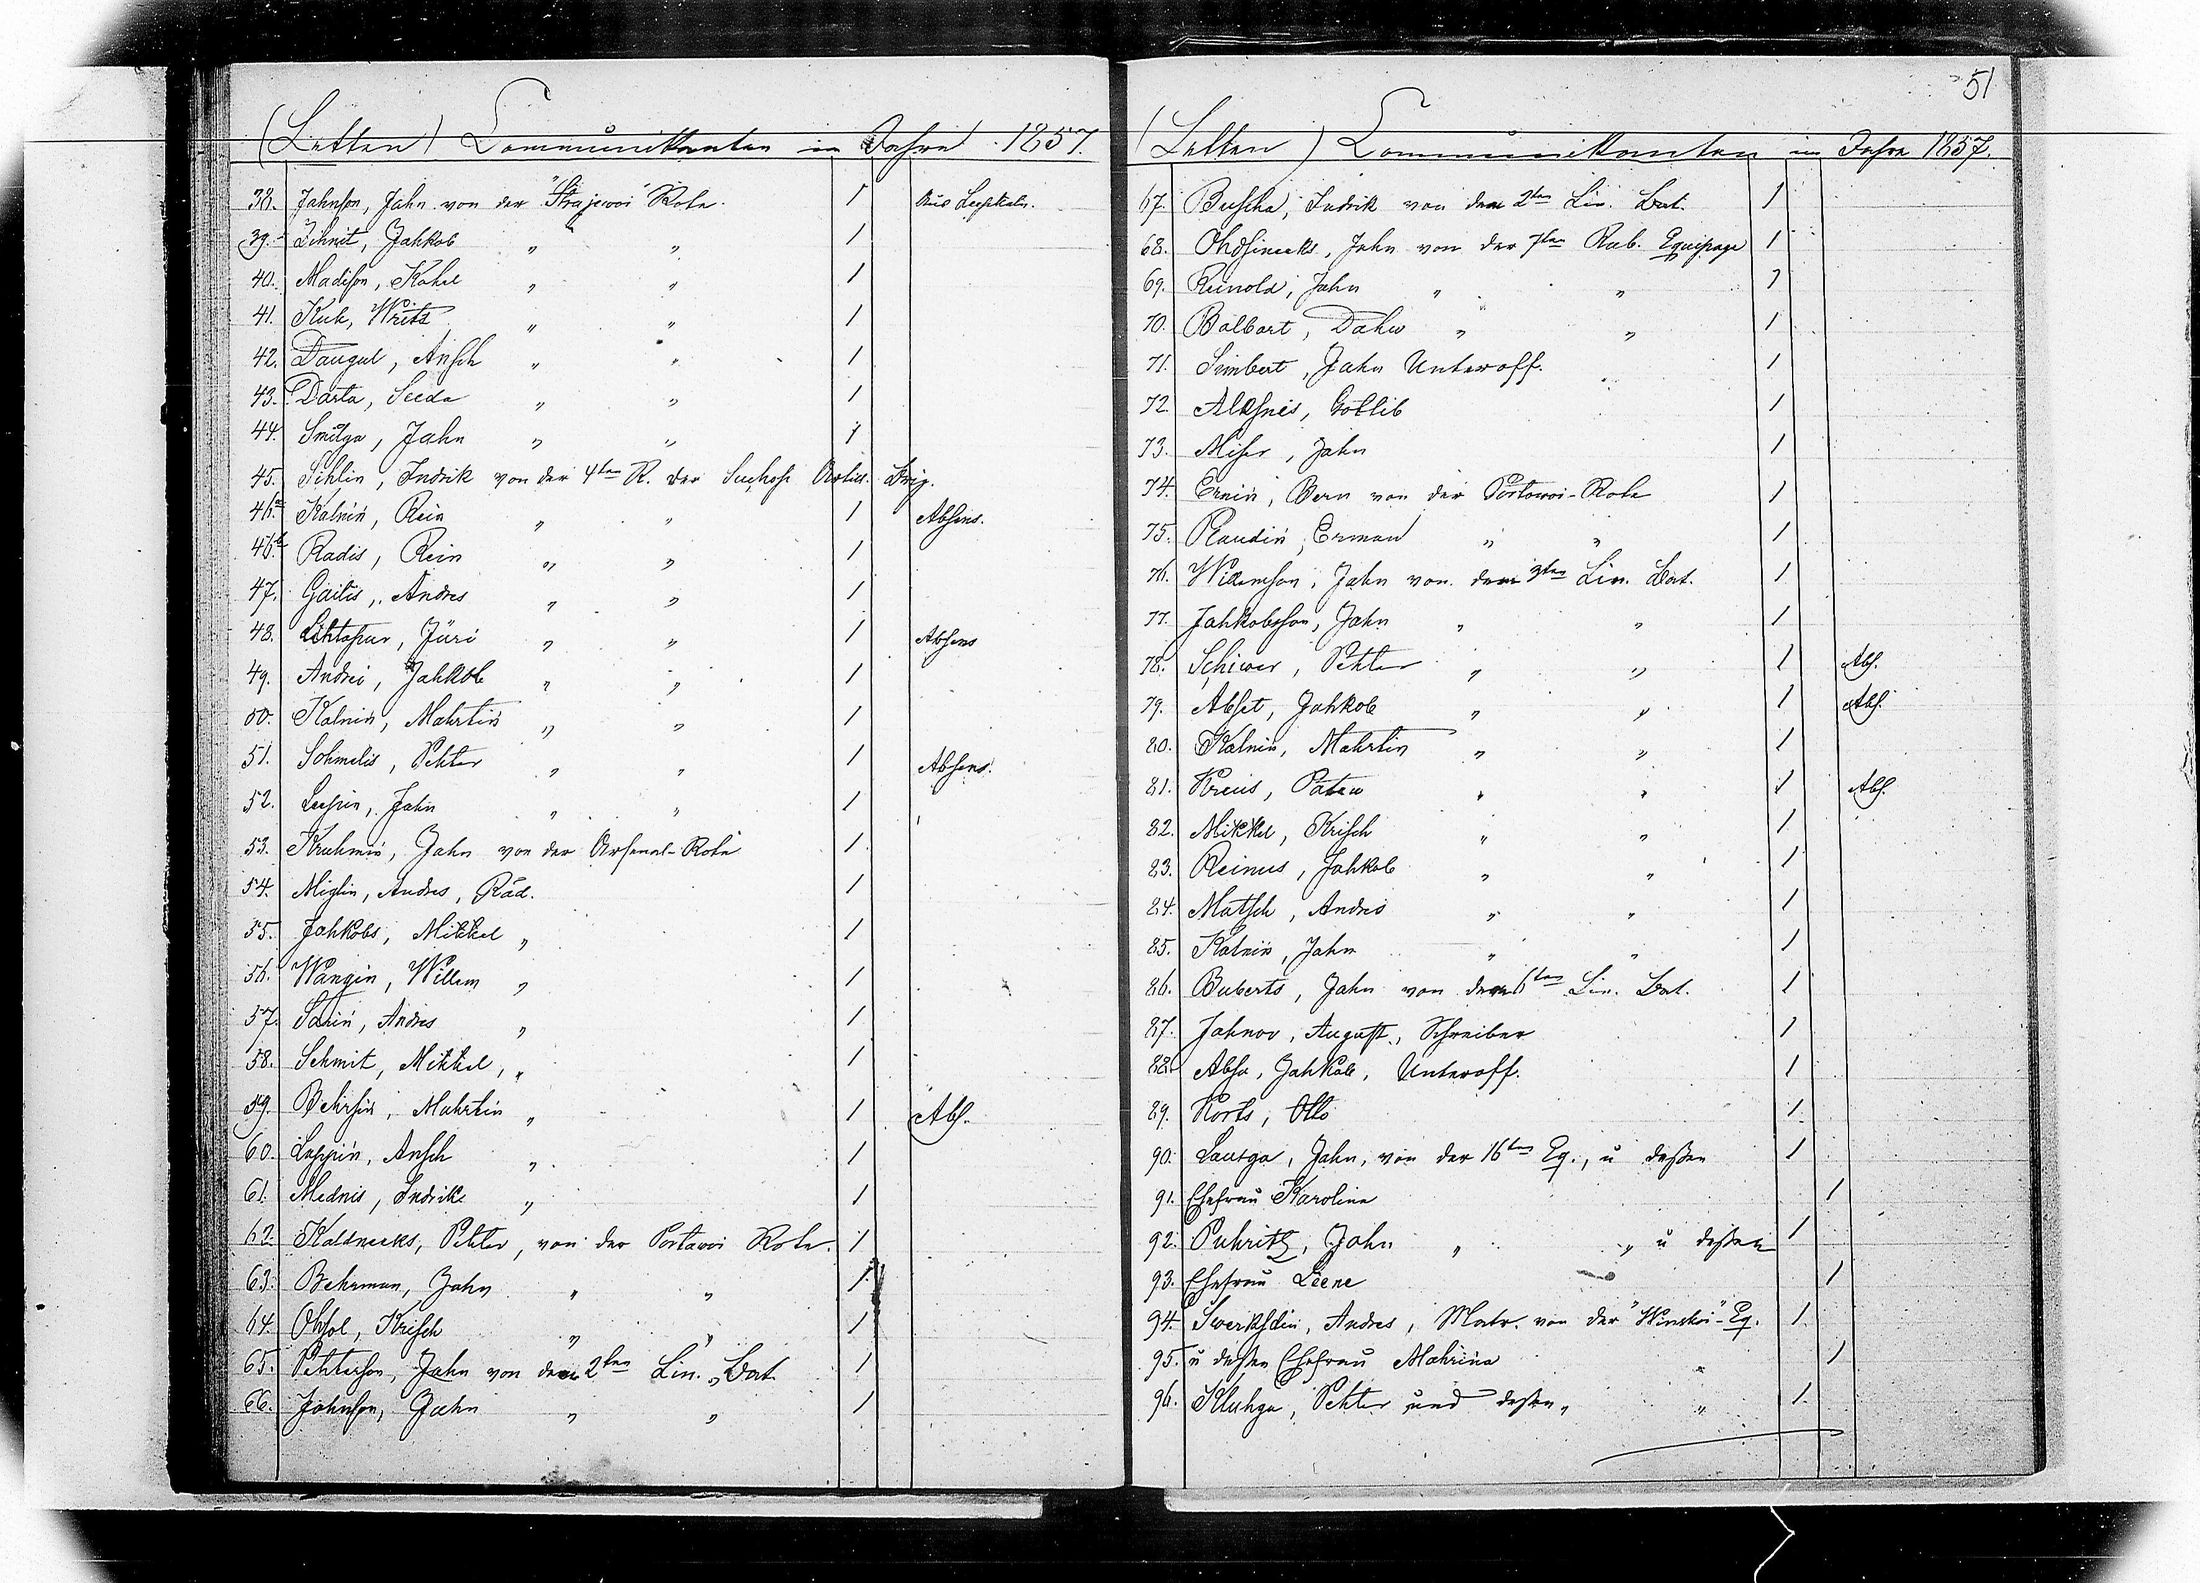 (Letten) Communikanten im Jahre 1857.
38. Jahnson, Jahn von der "Strajewoi" Rote. 1
39. Sihnit, Jahkob " " 1
40. Madison, Kahrl " " 1
41. Kuk, Writz " " 1
42. Daugul, Ansch " " 1
43. Darta, Seeda " " 1
44. Smilga, Jahn " " 1
45. Sihlin, Indrik von der 4ten R. der Artill. Brig.
46.a Kalniń, Rein " " 1 Absens.
46.b Radis, Rein " " 1
47. Gailis, Andres " " 1
48. Jüri " " 1 Absens
49. Andrei, Jahkob " " 1
50. Kalniń, Mahrtiń " " 1
51. Sohmelis, Pehter " " 1 Absens.
52. Leepin, Jahn " " 1
53. Kruhmiń, Jahn von der Arsenal-Rote 1
54. Miglin, Andres, Räd. 1
55. Jahkobs, Mikkel " 1
56. Wangin, Willem " 1
57. Andres " 1
58. Schmit, Mikkel, " 1
59. Behrsiń, Mahrtin " 1 Abs.
60. Ansch " 1
61. Mednis, Indrik " 1
62. Kaldneeks, Pehter, von der Portowoi Rote. 1
63. Behrman, Jahn " " 1
64. Ohsol, Krisch " " 1
65. Pehterson, Jahn von dem 2ten Lin. Bat. 1
66. Jahnson, Jahn " " 1
51
(Letten) Communikanten im Jahre 1857.
67. Buscha, Indrik von dem 2ten Lin. Bat. 1
68. Ohdsineeks, Jahn von der 7ten Rab. Equipage 1
69. Reinold, Jahn " " 1
70. Balbart, Dahw " " 1
71. Simbert, Jahn Unteroff. 1
72. Alksnis, Gottlib 1
73. Miser, Jahn 1
74. Erniń, Bern von der Portowoi-Rote 1
75. Raudiń, Erman " " 1
76. Willemson, Jahn von dem 3ten Lin. Bat. 1
77. Jahkobsson, Jahn " " 1
78. Schiwer, Pehter " " 1 Abs.
79. Abset, Jahkob " " 1 Abs.
80. Kalniń, Mahrtin " " 1
81. Kreiis, " " 1 Abs.
82. Mikkel, Krisch " " 1
83. Reinus, Jahkob " " 1
84. Matsch, Andres " " 1
85. Kalniń, Jahn " " 1
86. Buberts, Jahn von dem 6ten Lin. Bat. 1
87. Jahnov, August, Schreiber 1
88. Abso, Jahkob, Unteroff. 1
89. Korts, Otto 1
90. Lautga, Jahn, von der 16ten Eq., u deßen 1
91. Ehefrau Karoline 1
92. Puhritz, Jahn " " u deßen 1
93. Ehefrau Leene 1
94. Swerksdin, Andres, Matr. von der "Winskoi"-Eq. 1
95. u deßen Ehefrau Mahrina " 1
96. Kluhga, Pehter und deßen " " 1